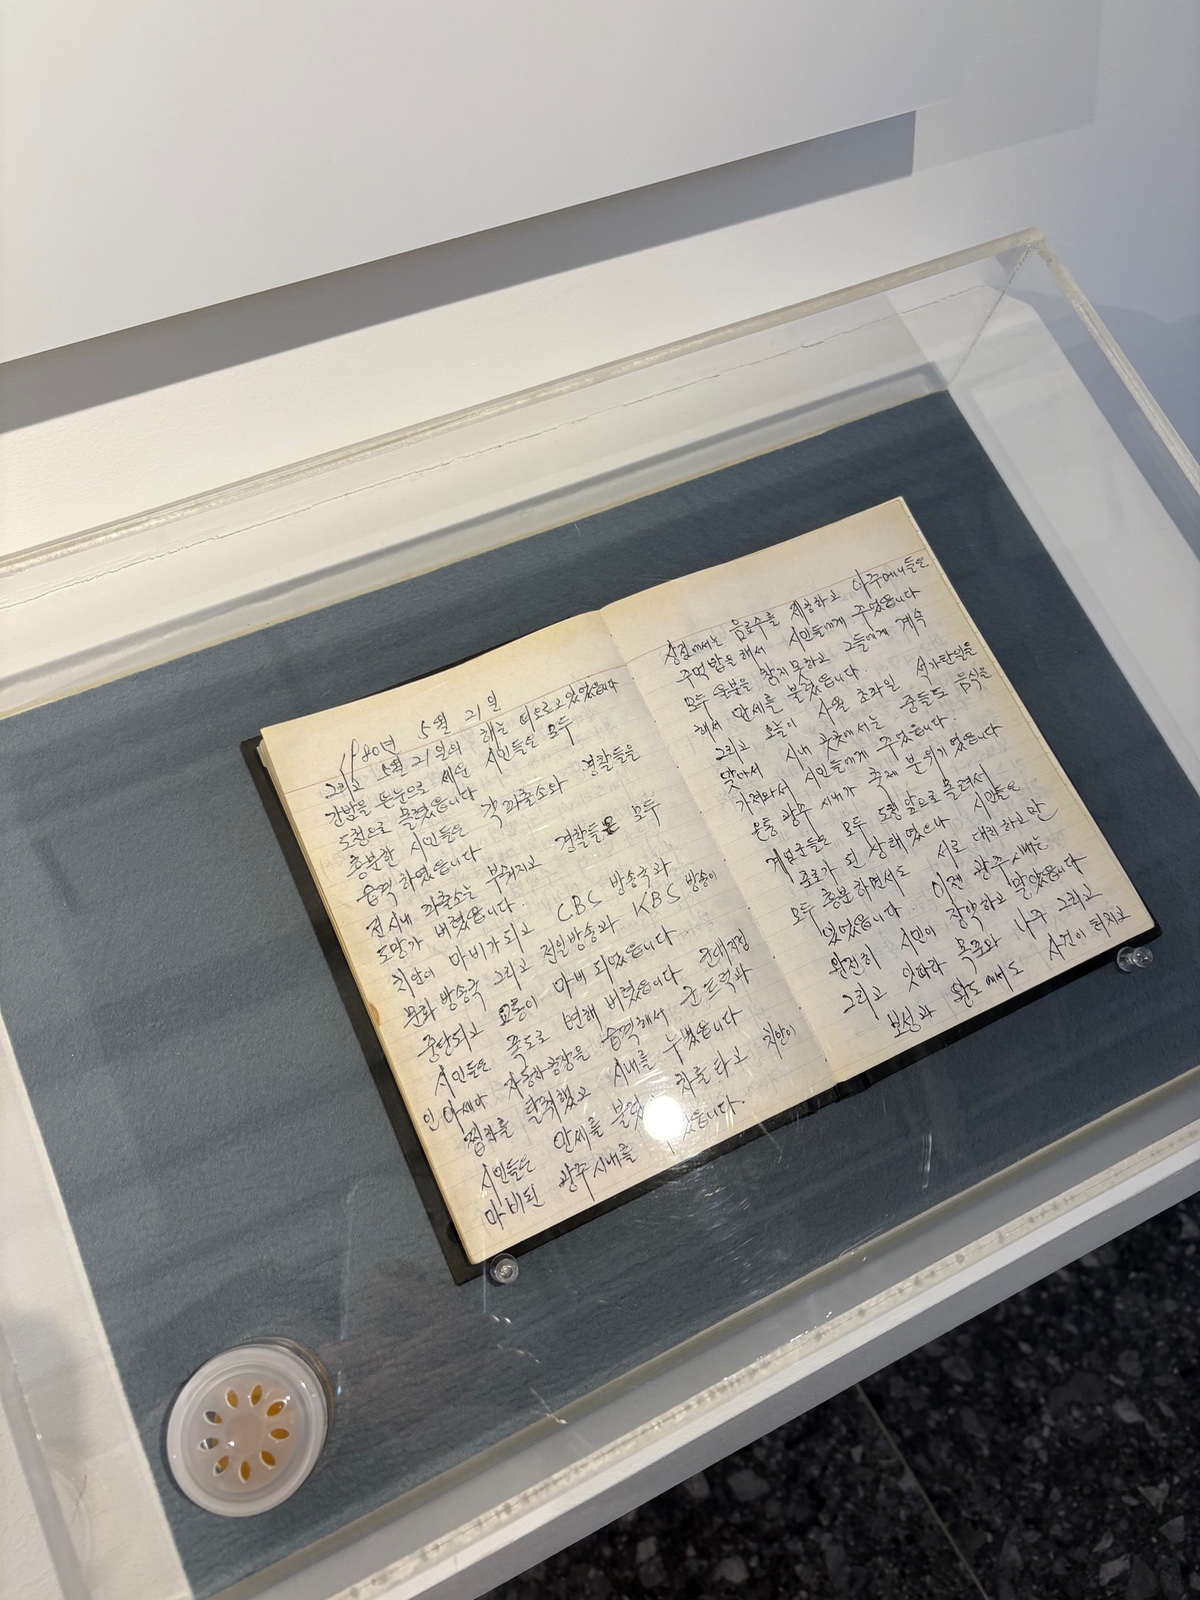 1980년 5월 21일
그리고 5월 21일의 해는 떠오르고 있었읍니다
간밤을 뜬눈으로 새운 시민들은 모두
도청으로 몰렸읍니다
흥분한 시민들은 각 파출소와 경찰들을
습격하였읍니다
전시내 파출소는 부숴지고 경찰들은 모두
도망가 버렸읍니다.
치안이 마비가 되고 CBC 방송국과
문화 방송국 그리고 전일방송과 KBS 방송이
중단되고 교통이 마비 되었읍니다
시민들은 폭도로 변해 버렸읍니다 군대지정
인 아세아 자동차공장을 습격해서 군트럭과
찝차를 탈취했고 시내를 누볐읍니다
시민들은 만세를 차를 타고 치안이
마비된 광주시내를
상점에서는 음료수를 제공하고 아주머니들은
주먹밥을 해서 시민들에게 주었읍니다
모두 울분을 참지못하고 그들에게 계속
해서 만세를 불렀읍니다.
그리고 오늘이 사월 초파일 석가탄일을
맞아서 시내 곳곳에서는 중들도 음식을
가져와서 시민들에게 주었읍니다.
온통 광주 시내가 축제 분위기였읍니다
계엄군들은 모두 도청앞으로 몰려서
포로가 된 상태였으나 시민들은
모두 흥분하면서도 서로 대치하고만
있었읍니다. 이젠 광주시내는
완전히 시민이 장악하고 말았읍니다
그리고 잇따라 목포와 나주 그리고
보성과 완도에서도 사건이 터지고